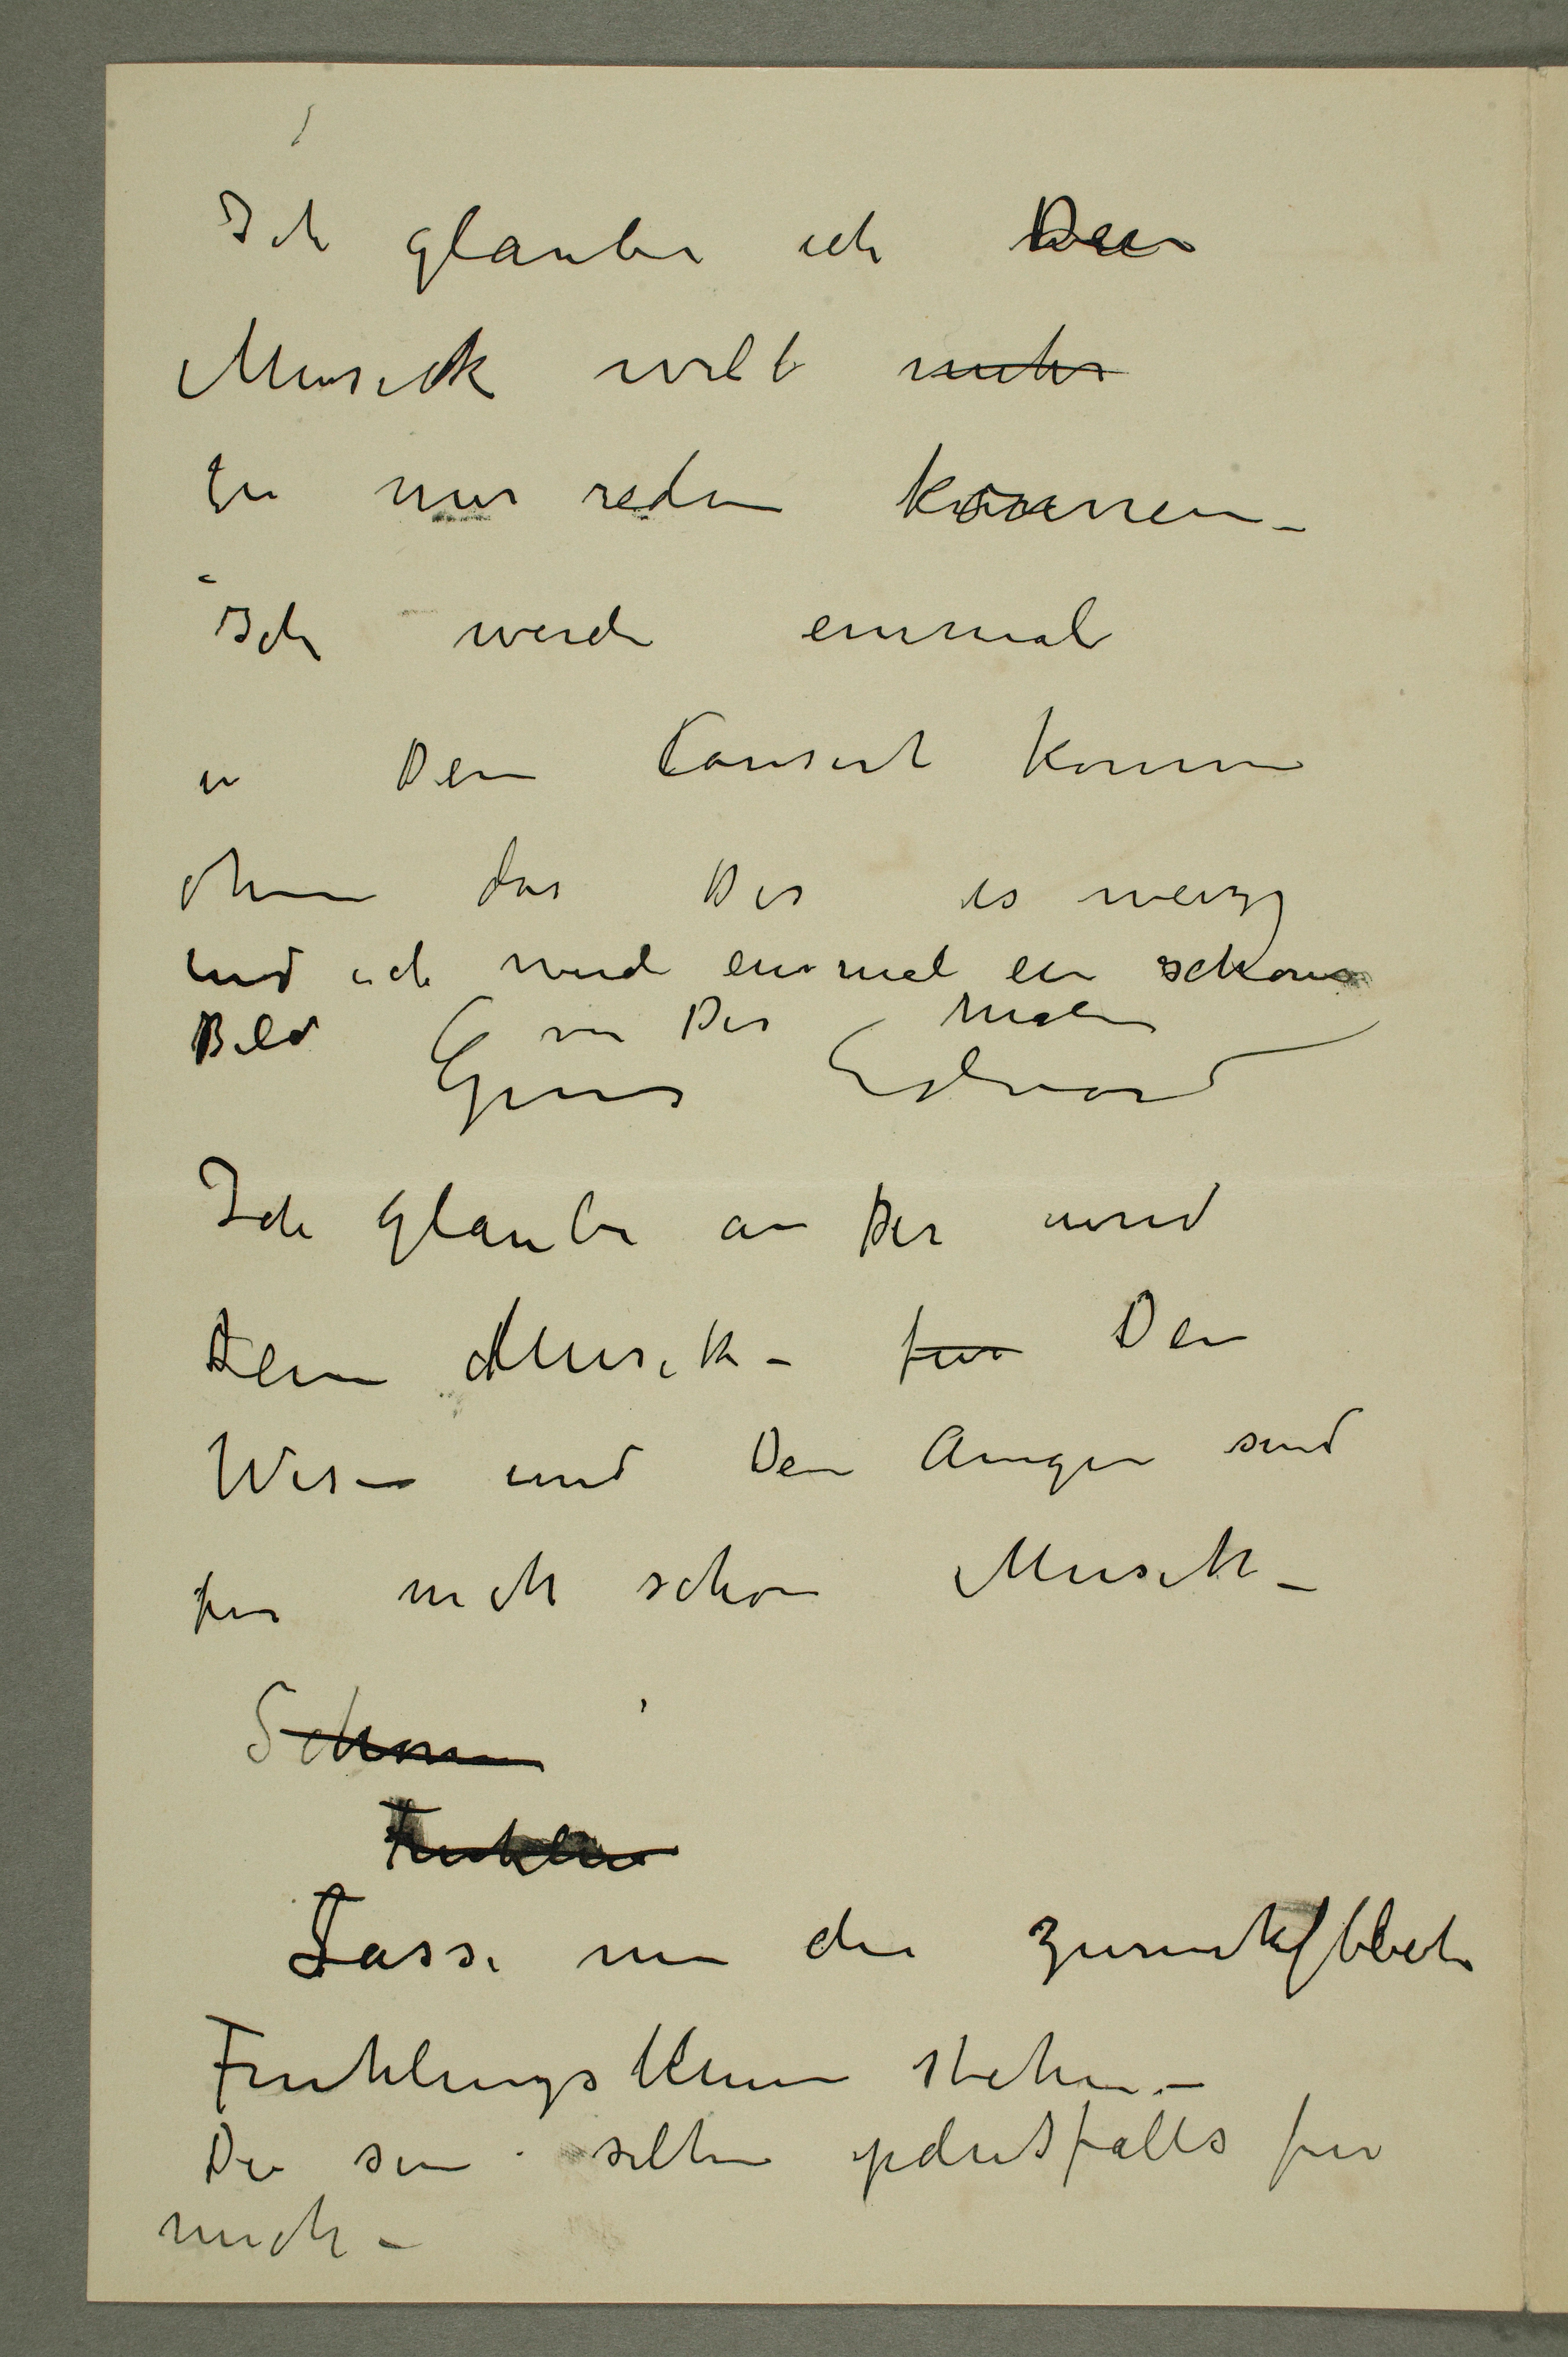 Ich glaube ich Dein
Musick will mehr
zu mir reden können –
Ich werde einmal
in Dein Consert kommen
ohne das Du es weizz
und ich werde einmal ein schönes
Bild von Dir malen
Gruss Edvard
Ich glaube an Dir und
Dein Musik – fur Dein
Wesen und Dein Augen sind
fur mich schon Musik –
Schonen
Lasse nun die zuruck/bleib
Fruhlingsblumen stehen –
Die sein selten jedesfalls fur
mich –